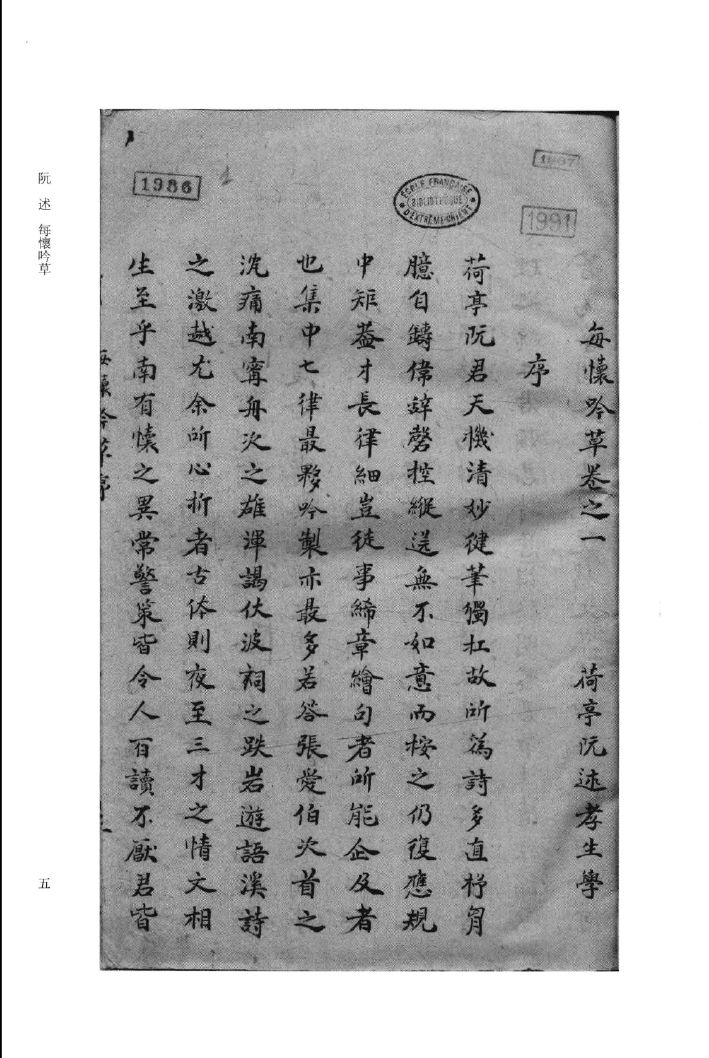 阮述 每懷吟草
1986
1
ÉCOLE FRANÇAISE D'EXTRÊME-ORIENT
BIBLIOTHÈQUE
1991
每懷吟草卷之一 荷亭阮述孝生學
序
荷亭阮君天機清妙健筆獨扛故所為詩多直抒胷
臆自鑄偉辞磬控縱送無不如意而桉之仍復應規
中矩葢才長律細豈徒事絺章繪句者所能企及者
也集中七律最夥吟製亦最多若答張愛伯次首之
沉痛南寧舟次之雄渾謁伏波祠之跌岩遊語溪詩
之激越尤余所心折者古体則夜至三才之情文相
生至乎南有懐之異常警策皆令人百讀不厭君皆
每懷吟草序
五